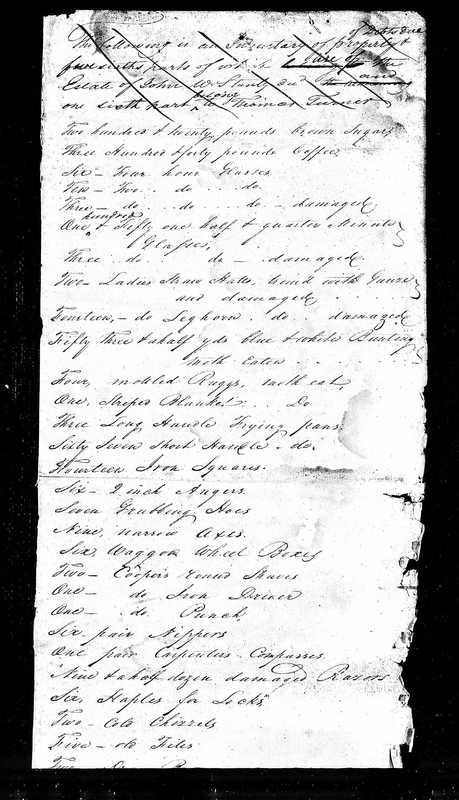 of Debts due
The following is an Inventory of property &
five sixths parts of
Estate of John W. Stanly and
one sixth part belong to Thomas Turner
Two hundred & twenty pounds brown Sugar
Three Hundred & forty pounds Coffee
Six - Four hour Glasses
Ten - Two do do
Three - do. do. do - damaged
One hundred & Fifty one half & quarter Minute
Glasses,
Three do do - damaged
Two - Ladies Straw Hatts, trimd with Gauze
and damaged
Fourteen, - do Leghorn do damaged
Fifty three & half yds blue & white Bunting
moth Eaten
Four, Ruggs, moth eat,
One, Striped Blanket Do
Three Long Handle Frying pans
Sixty Seven Short Handle - do.
Fourteen Iron Squares.
Six - 2 inch Augers
Seven Grubbing Hoes
Nine, narrow Axes.
Six, Waggon Wheel Boxes
Two - Coopers round Shaves
One - do Iron Driver
One - do. Punch.
Six pair Nippers
One pair Carpenters Compasses
Nine & a half dozen damaged Razors
Six, Staples for Locks
Two - Cold Chizzels
Five - old Files